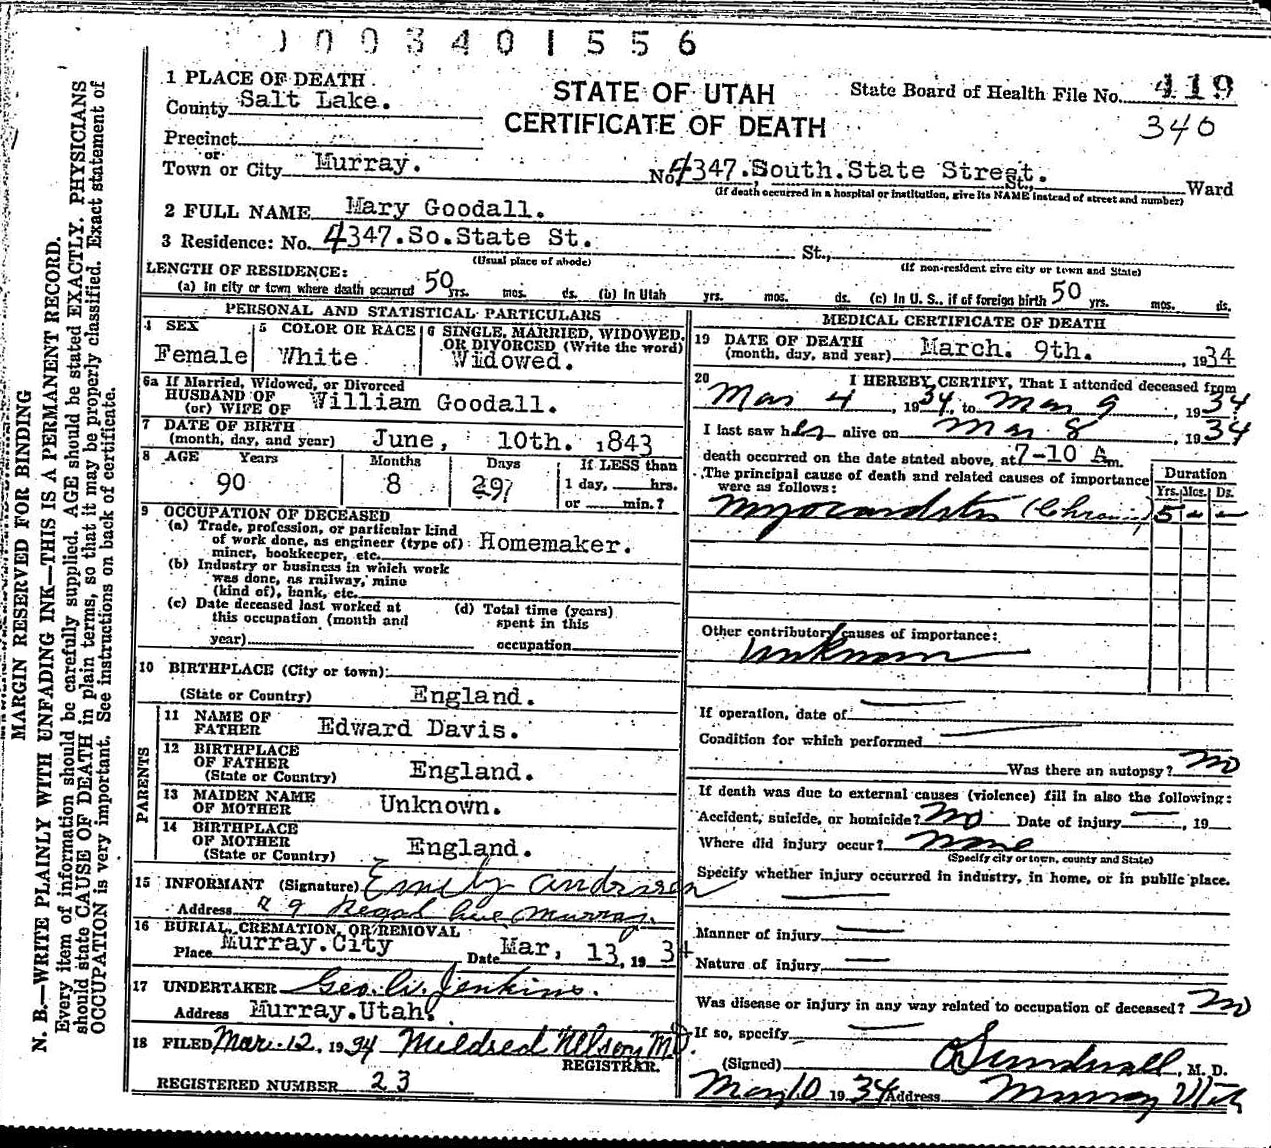 0003401556
1 PLACE OF DEATH
County Salt Lake.
STATE OF UTAH
CERTIFICATE OF DEATH
State Board of Health File No. 419
340
Precinct
or
Town or City Murray.
No. 4347.South.State Street. St., Ward
(If death occurred in a hospital or institution, give its NAME instead of street and number)
2 FULL NAME Mary Goodall.
3 Residence: No. 4347.So.State St. St.,
(Usual place of abode) (If non-resident give city or town and State)
LENGTH OF RESIDENCE:
(a) In city or town where death occurred 50 yrs. mos. ds. (b) In Utah yrs. mos. ds. (c) In U. S., if of foreign birth 50 yrs. mos. ds.
PERSONAL AND STATISTICAL PARTICULARS
4 SEX
Female
5 COLOR OR RACE
White
6 SINGLE, MARRIED, WIDOWED, OR DIVORCED (Write the word)
Widowed.
6a If Married, Widowed, or Divorced
HUSBAND OF
(or) WIFE OF William Goodall.
7 DATE OF BIRTH
(month, day, and year) June, 10th. 1843
8 AGE Years Months Days If LESS than
90 8 29 1 day, hrs.
or min.?
9 OCCUPATION OF DECEASED
(a) Trade, profession, or particular kind
of work done, as engineer (type of) Homemaker.
miner, bookkeeper, etc.
(b) Industry or business in which work
was done, as railway, mine
(kind of), bank, etc.
(c) Date deceased last worked at
this occupation (month and
year)
(d) Total time (years)
spent in this
occupation
10 BIRTHPLACE (City or town):
(State or Country) England.
PARENTS
11 NAME OF
FATHER Edward Davis.
12 BIRTHPLACE
OF FATHER
(State or Country) England.
13 MAIDEN NAME
OF MOTHER Unknown.
14 BIRTHPLACE
OF MOTHER
(State or Country) England.
15 INFORMANT (Signature) Emily Andrasen
Address 29 Regal Ave Murray.
16 BURIAL, CREMATION, OR REMOVAL
Place Murray.City Date Mar, 13, 1934
17 UNDERTAKER Geo. W. Jenkins.
Address Murray.Utah.
18 FILED Mar. 12, 1934 Mildred Nelson M.D.
REGISTRAR.
REGISTERED NUMBER 23
MEDICAL CERTIFICATE OF DEATH
19 DATE OF DEATH
(month, day, and year) March. 9th. 1934
20 I HEREBY CERTIFY, That I attended deceased from
Mar 4, 1934, to Mar 9, 1934
I last saw her alive on Mar 8, 1934
death occurred on the date stated above, at 7-10 A m.
The principal cause of death and related causes of importance
were as follows:
Duration
Yrs. Mos. Ds.
Myocarditis (Chronic) 5 - -
Other contributory causes of importance:
Unknown
If operation, date of
Condition for which performed
Was there an autopsy? no
If death was due to external causes (violence) fill in also the following:
Accident, suicide, or homicide? No Date of injury , 19
Where did injury occur? None
(Specify city or town, county and State)
Specify whether injury occurred in industry, in home, or in public place.
Manner of injury
Nature of injury
Was disease or injury in any way related to occupation of deceased? no
If so, specify
(Signed) O Sundwall, M. D.
Mar 10 1934 Address Murray Utah
MARGIN RESERVED FOR BINDING
N. B.—WRITE PLAINLY WITH UNFADING INK—THIS IS A PERMANENT RECORD.
Every item of information should be carefully supplied. AGE should be stated EXACTLY. PHYSICIANS
should state CAUSE OF DEATH in plain terms, so that it may be properly classified. Exact statement of
OCCUPATION is very important. See instructions on back of certificate.